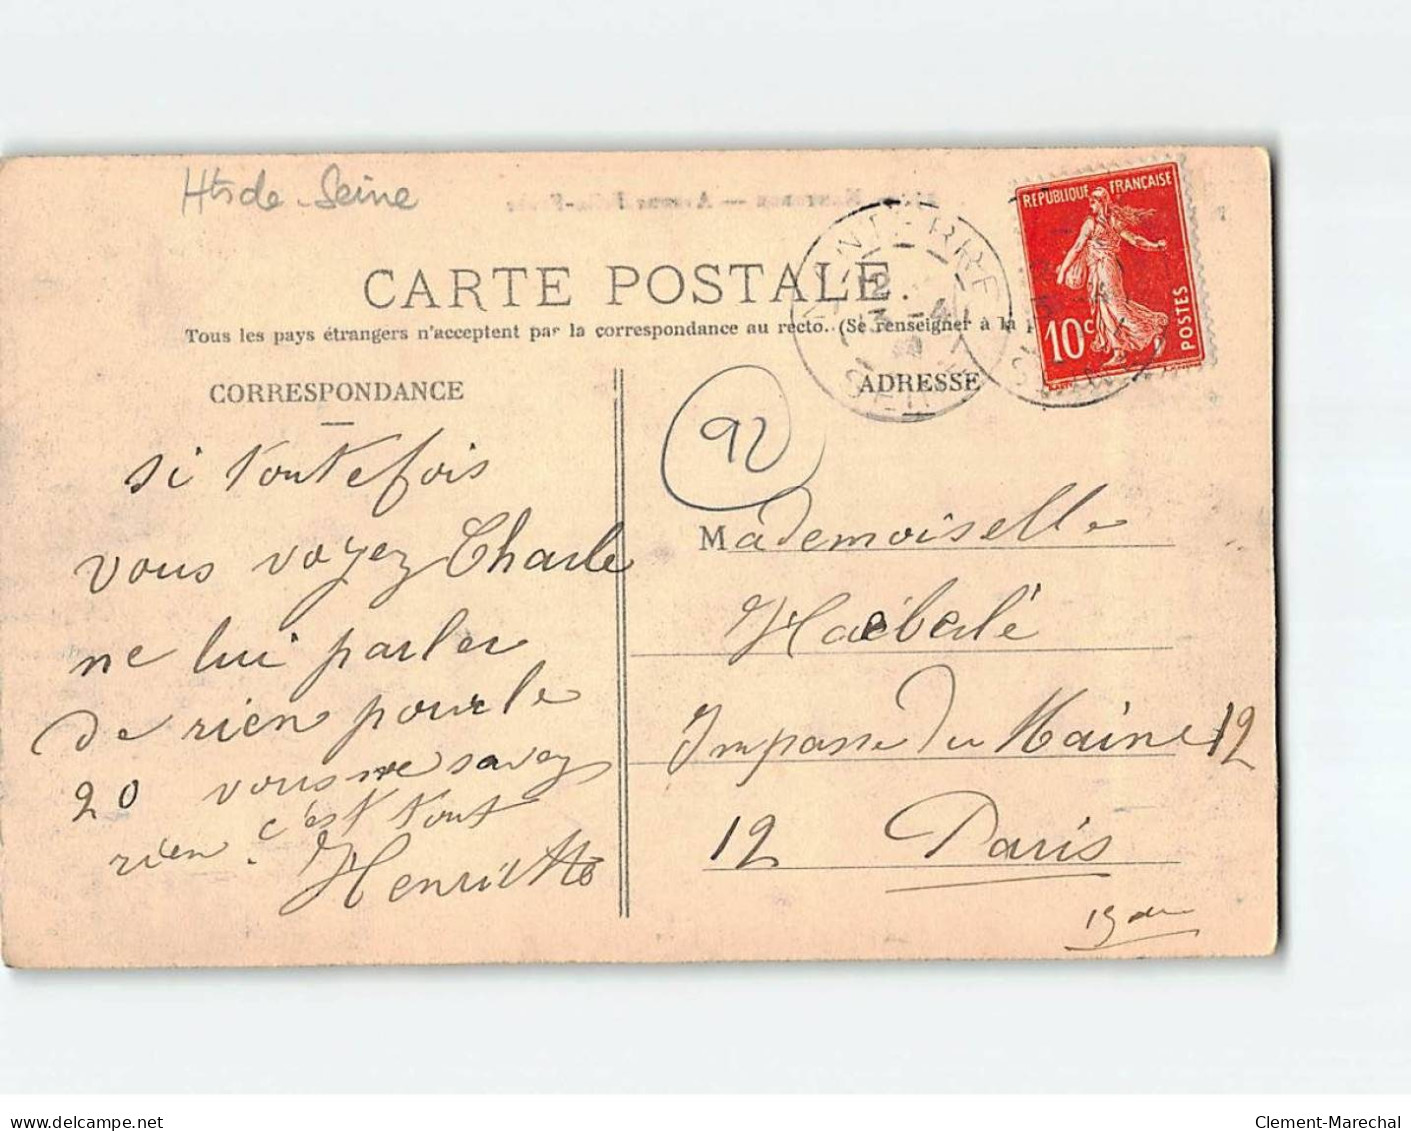 Hts de Seine
CARTE POSTALE.
Tous les pays étrangers n'acceptent par la correspondance au recto. (Se renseigner à la
CORRESPONDANCE
si toutefois
vous voyez Charle
ne lui parler
de rien pour le
20 vous ne savez
rien. c'est tout
Henriette
NANTERRE
13 -4
SEINE
REPUBLIQUE FRANÇAISE
10c
POSTES
ADRESSE
92
Mademoiselle
Haéberlé
Impasse du Maine 12
12 Paris
delcampe.net
Clement-Marechal